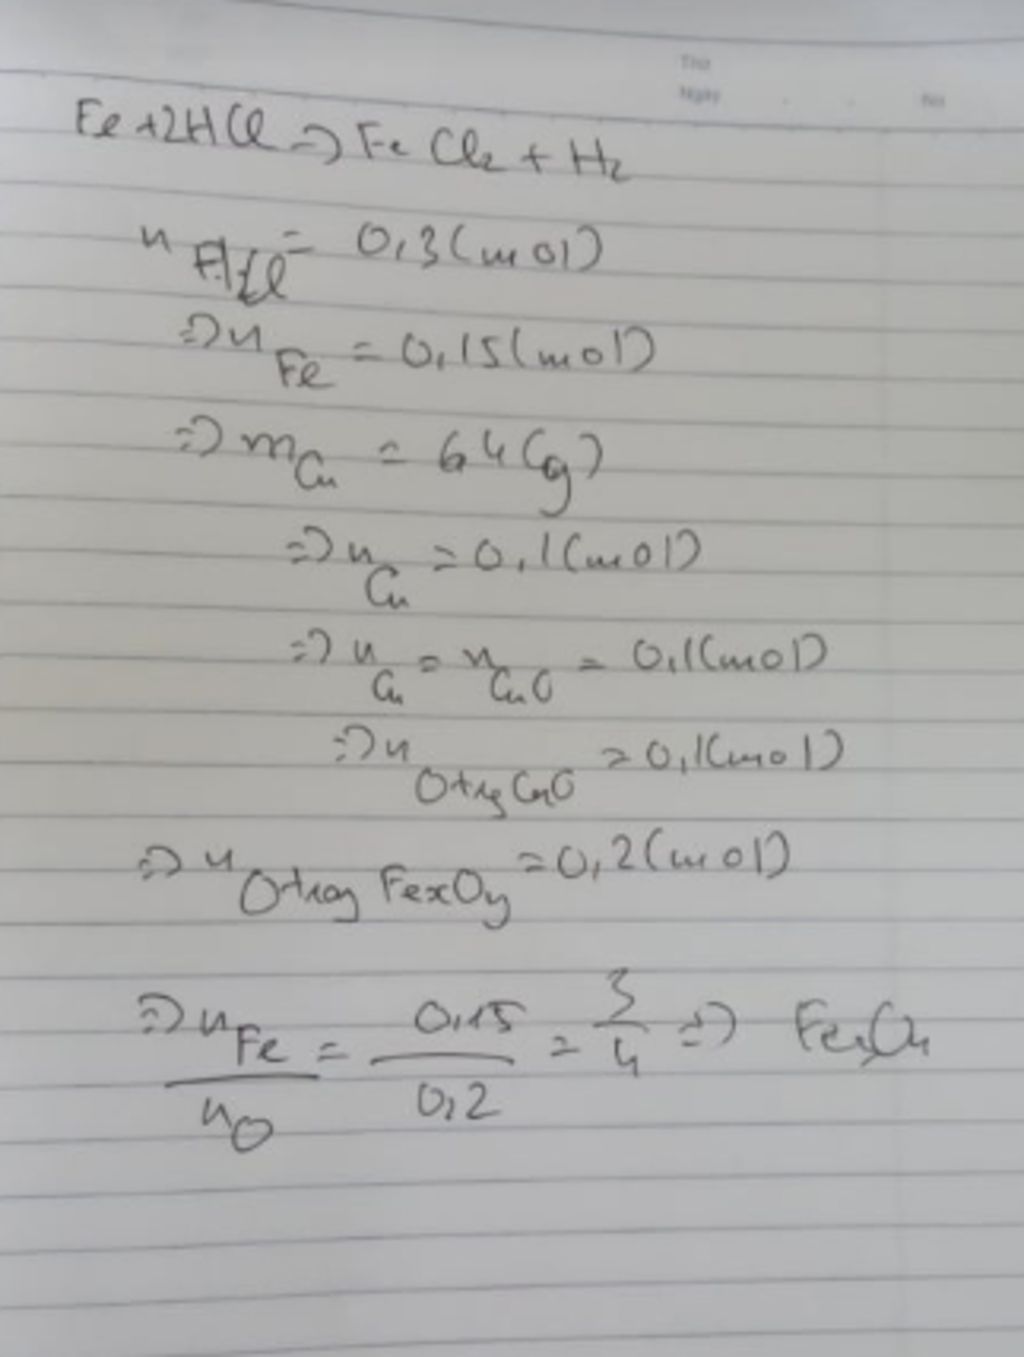 Thứ
Ngày No
Fe + 2HCl => FeCl2 + H2
n HCl = 0,3 (mol)
=> n Fe = 0,15 (mol)
=> m Cu = 64 (g)
=> n Cu = 0,1 (mol)
=> n Cu = n CuO = 0,1 (mol)
=> n O trg CuO = 0,1 (mol)
=> n O trog FexOy = 0,2 (mol)
=> n Fe / n O = 0,15 / 0,2 = 3/4 => Fe3O4